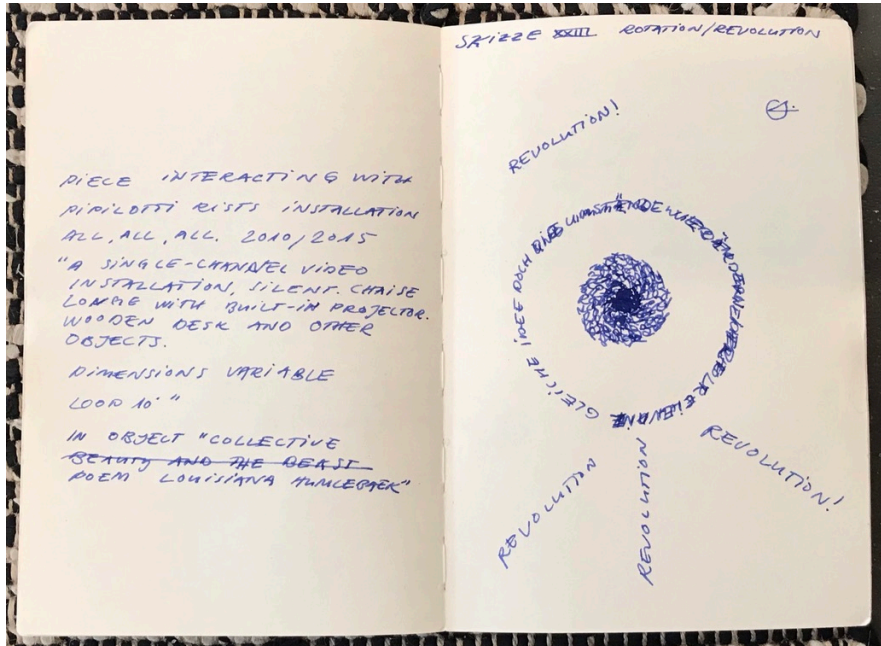 PIECE INTERACTING WITH
PIPILOTTI RISTS INSTALLATION
ALL, ALL, ALL. 2010/2015
"A SINGLE-CHANNEL VIDEO
INSTALLATION, SILENT. CHAISE
LONGUE WITH BUILT-IN PROJECTOR.
WOODEN DESK AND OTHER
OBJECTS.
DIMENSIONS VARIABLE
LOOP 10'"
IN OBJECT "COLLECTIVE
BEAUTY AND THE BEAST
POEM LOUISIANA HUMLEBAEK"
SKIZZE XXIII ROTATION/REVOLUTION
REVOLUTION!
GLEICHE IDEE DOCH DIE
REVOLUTION
REVOLUTION
REVOLUTION!